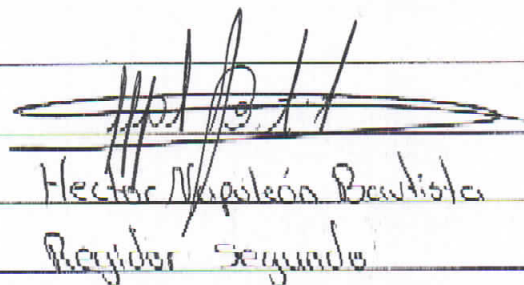 Hector Napoleón Bautista
Regidor Segundo